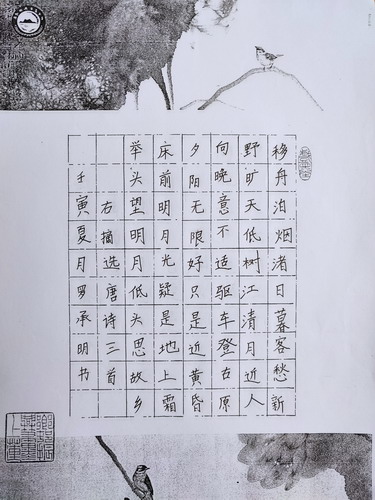 移舟泊烟渚日暮客愁新
野旷天低树江清月近人
向晚意不适驱车登古原
夕阳无限好只是近黄昏
床前明月光疑是地上霜
举头望明月低头思故乡
右摘选唐诗三首
壬寅夏月罗承明书